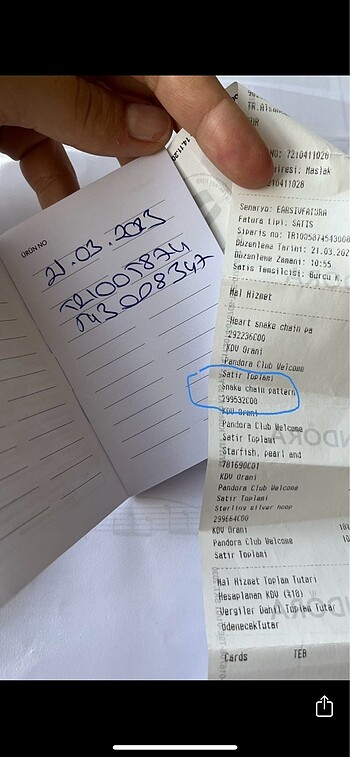 ÜRÜN NO
21.03.2023
TR1005874
543008347
14.11.20
TR.Alsan
NO: 7210411028
iresi: Maslak
7210411028
Senaryo: EARSIVFATURA
Fatura tipi: SATIS
Siparis no: TR1005874543008
Düzenlene Tarihi: 21.03.202
Düzenlene Zamanı: 10:55
Satis Temsilcisi: Burcu K.
Mal Hizmet
Heart snake chain pa
292236C00
KDV Orani
Pandora Club Welcome
Satir Toplami
Snake chain pattern
299532C00
KDV Orani
Pandora Club Welcome
Satir Toplami
Starfish, pearl and
781690C01
KDV Orani
Pandora Club Welcome
Satir Toplami
Sterling silver hoop
299664C00
KDV Orani
Pandora Club Welcome
Satir Toplami
Mal Hizmet Toplam Tutari
Hesaplanan KDV (%18)
Vergiler Dahil Toplam Tutar
ÖdenecekTutar
Cards TEB